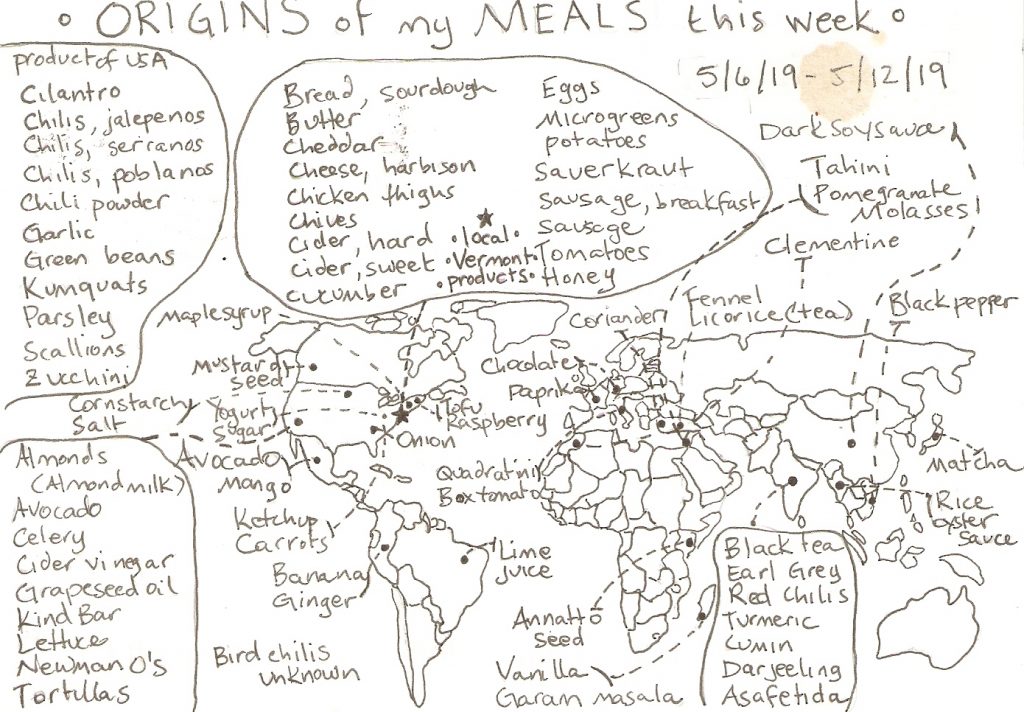 • ORIGINS of my MEALS this week •
5/6/19 - 5/12/19
product of USA
Cilantro
Chilis, jalepenos
Chilis, serranos
Chilis, poblanos
Chili powder
Garlic
Green beans
Kumquats
Parsley
Scallions
Zucchini
Bread, sourdough
Butter
Cheddar
Cheese, harbison
Chicken thighs
Chives
Cider, hard
Cider, sweet
Cucumber
•local•
•Vermont•
•products•
Eggs
Microgreens
potatoes
Sauerkraut
Sausage, breakfast
Sausage
Tomatoes
Honey
Dark soy sauce
Tahini
Pomegranate
Molasses
Clementine
Fennel
Licorice (tea)
Black pepper
Maple syrup
Coriander
Mustard
seed
Chocolate
Paprika
Cornstarch
Salt
Yogurt
Sugar
Tofu
Raspberry
Onion
Avocado
Mango
Quadratini
Box tomato
Matcha
Ketchup
Carrots
Rice
oyster
Sauce
Banana
Ginger
Lime
juice
Annatto
seed
Vanilla
Garam masala
Bird chilis
unknown
Almonds
(Almondmilk)
Avocado
Celery
Cider vinegar
Grapeseed oil
Kind Bar
Lettuce
Newman O's
Tortillas
Black tea
Earl Grey
Red Chilis
Turmeric
Cumin
Darjeeling
Asafetida